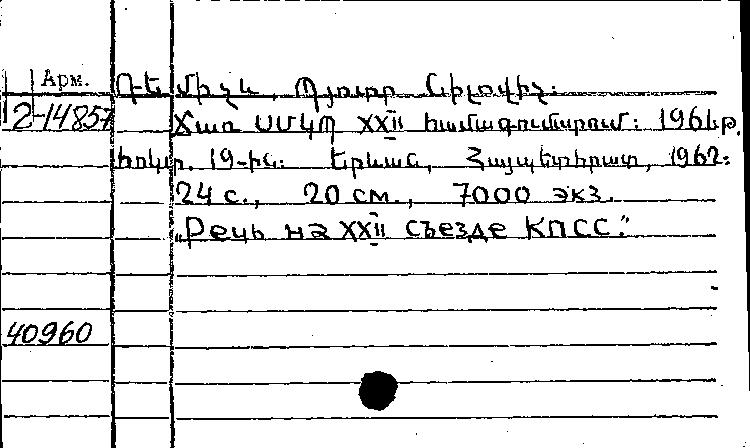 Арм. Դեմիչև, Պյոտր Նիլովիչ։
2-14857 Ճառ ՍՄԿՊ XXII համագումարում։ 1961թ.
հոկտ. 19-ին։ Երևան, Հայպետհրատ, 1962։
24 с., 20 см., 7000 экз.
„Речь на XXII съезде КПСС."
40960